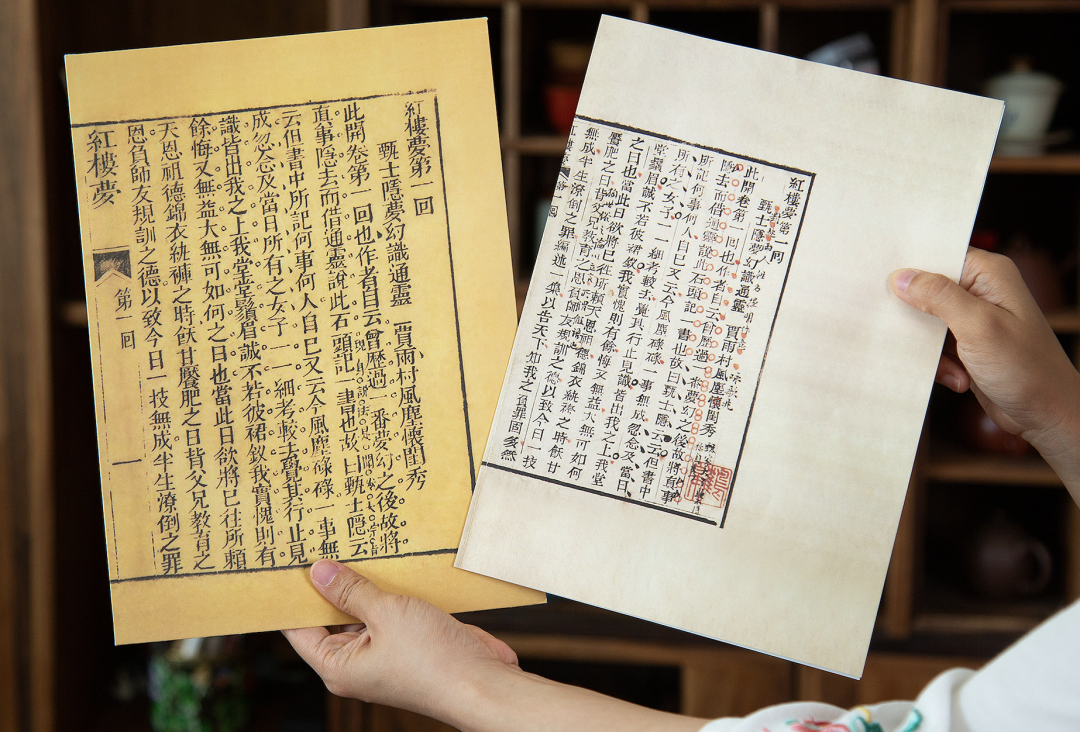 紅樓夢第一回
甄士隱夢幻識通靈 賈雨村風塵懷閨秀
此開卷第一回也作者自云曾歷過一番夢幻之後故將
真事隱去而借通靈說此石頭記一書也故曰甄士隱云
云但書中所記何事何人自己又云今風塵碌碌一事無
成忽念及當日所有之女子一一細考較去覺其行止見
識皆出我之上我堂堂鬚眉誠不若彼裙釵我實愧則有
餘悔又無益大無可如何之日也當此日欲將已往所賴
天恩祖德錦衣紈褲之時飫甘饜肥之日背父兄教育之
恩負師友規訓之德以致今日一技無成半生潦倒之罪
紅樓夢 第一回
紅樓夢第一回
甄士隱夢幻識通靈 賈雨村風塵懷閨秀
此開卷第一回也作者自云曾歷過一番夢幻之後故將真事
隱去而借通靈說此石頭記一書也故曰甄士隱云云但書中
所記何事何人自己又云今風塵碌碌一事無成忽念及當日
所有之女子一一細考較去覺其行止見識皆出我之上我堂
堂鬚眉誠不若彼裙釵我實愧則有餘悔又無益大無可如何
之日也當此日欲將已往所賴天恩祖德錦衣紈褲之時飫甘
饜肥之日背父兄教育之恩負師友規訓之德以致今日一技
無成半生潦倒之罪編述一集以告天下知我之負罪固多然